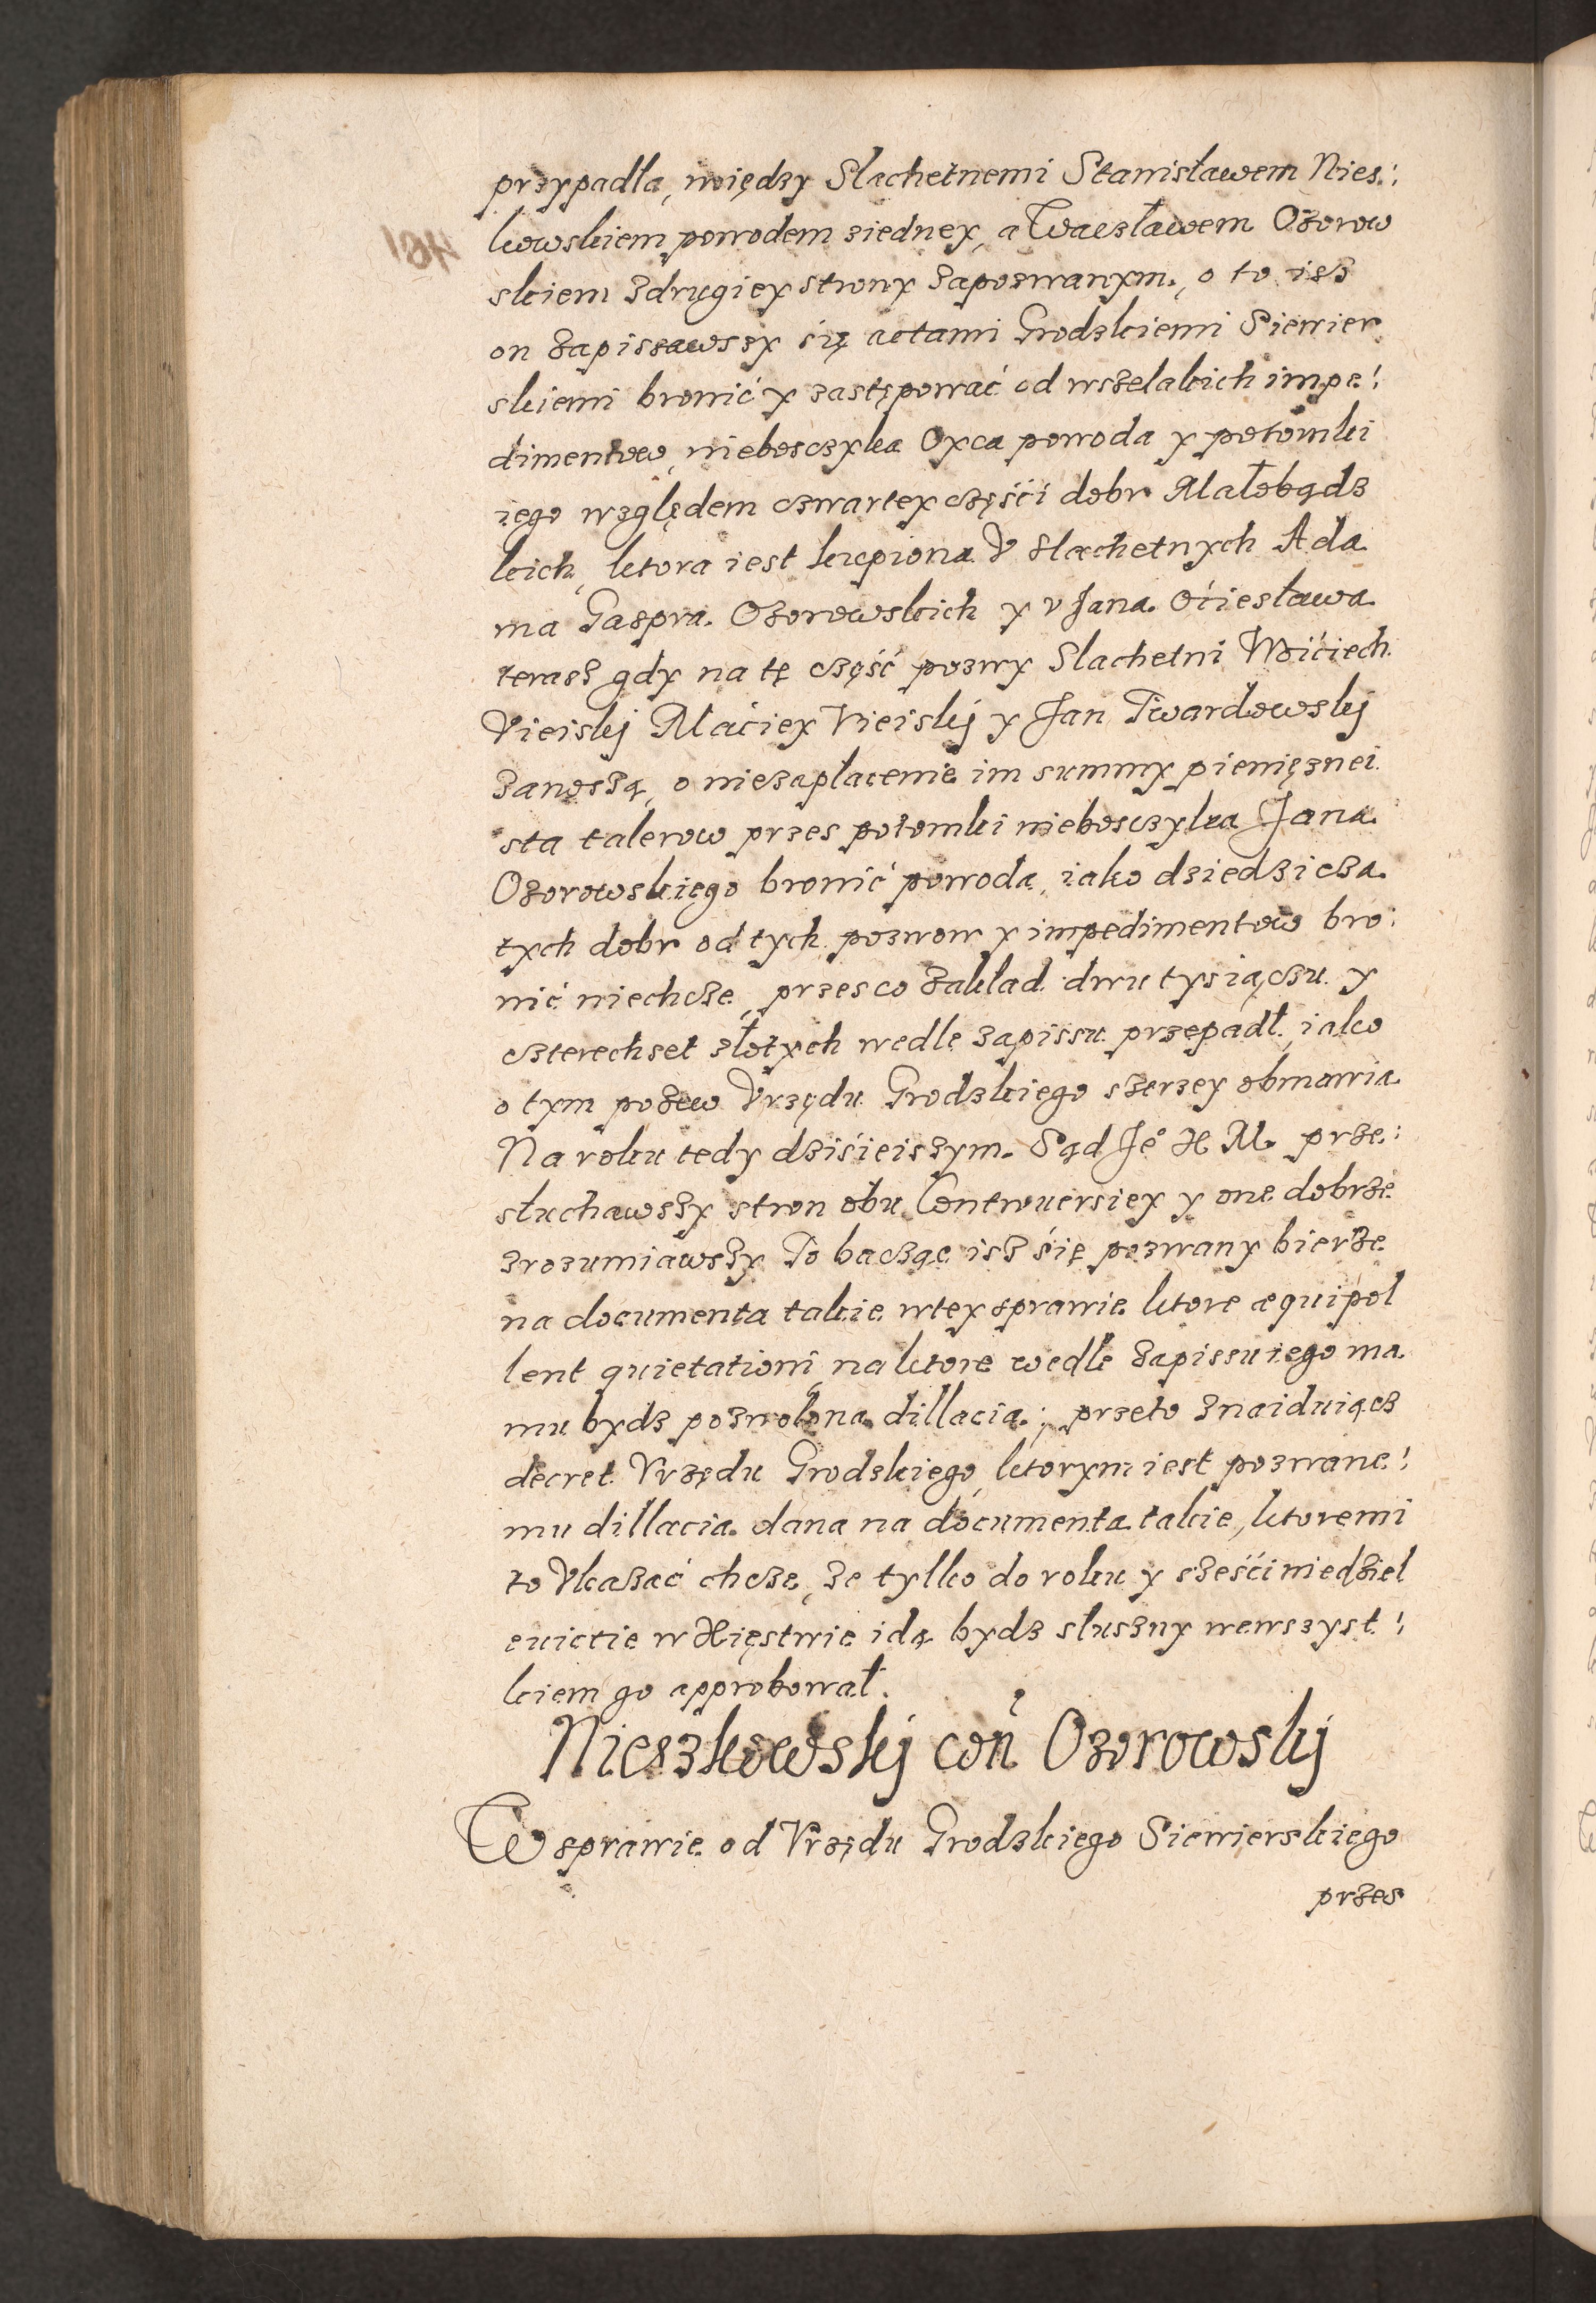 przypadła, między Slachetnemi Stanisławem Nies:
kowskiem powodem ziedney, a Waczławem Ozorow
skiem zdrugiey strony zapozwanym, o to isz
on zapissawszy się actami Grodzkiemi Siewier
skiemi bronić y zastępować od wszelakich impe:
dimentow, nieboszczyka Oyca powoda y potomki
iego względem czwartey części dobr Małobądz
kich, ktora iest kupiona V slachetnych Ada
ma Gaspra Ozorowskich y v Jana Ocieslawa
terasz gdy na tę część pozwy Slachetni Woiciech
Vieiskij Maciey Vieiskij y Jan Twardowskij
zanoszą, o niezapłacenie im summy pienięznei
sta talerow przes potomki nieboszczyka Jana
Ozorowskiego bronić powoda, iako dziedzicza
tych dobr od tych pozwow y impedimentow bro:
nić niechcze, przesco zakład dwu tysiączu y
czterechset złotych wedle zapissu przepadł, iako
o tym pozew Vrzędu Grodzkiego szerzey obmawia
Na roku tedy dzisieiszym Sąd Je° X M prze:
słuchawszy stron obu Controuersiey y one dobrze
zrozumiawszy To bacząc isz się pozwany bierze
na documenta takie wtey sprawie ktore æquipol
lent quietationi, na ktore wedle zapissu iego ma
mu bydz pozwolona dillacia; przeto znaiduiącz
decret Vrzędu Grodzkiego, ktorym iest pozwane:
mu dillacia dana na documenta takie, ktoremi
to Vkazać chcze, ze tylko do roku y sześci niedziel
euictie w Xięstwie idą bydz słuszny wewszyst:
kiem go approbował.
Nieszkowskij con Ozorowskij
W sprawie od Vrzędu Grodzkiego Siewierskiego
przes